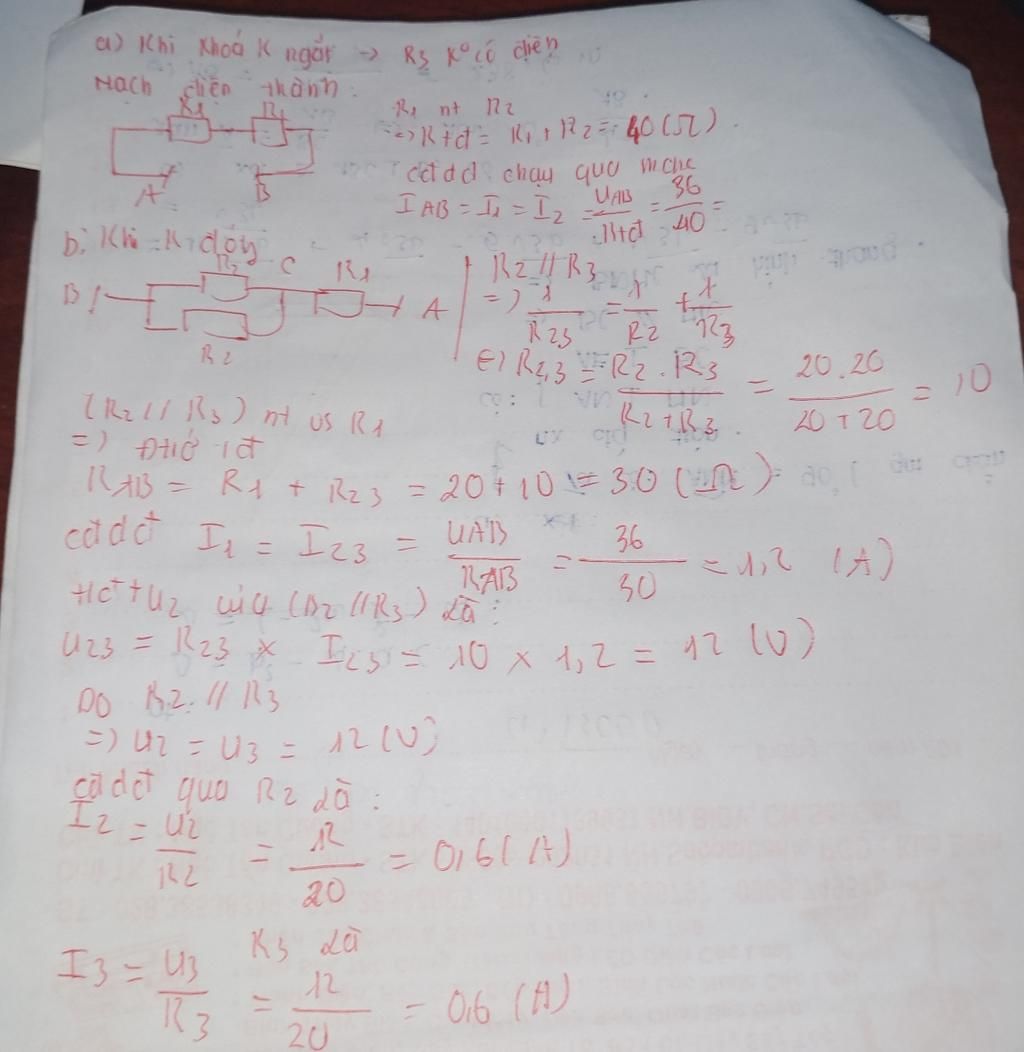 a) Khi khoá K ngắt → R3 K° có điện
Mạch điện thành:
R1 R2
A B
R1 nt R2
=> Rtđ = R1 + R2 = 40 (Ω).
cđdđ chạy qua mạch
IAB = I1 = I2 = UAB/Rtđ = 36/40 =
b; Khi K đóy
R2 C R1
B A
R2
R2 // R3
=> 1/R23 = 1/R2 + 1/R3
(=) R2,3 = R2.R3/R2+R3 = 20.20/20+20 = 10
(R2 // R3) nt vs R1
=) Đtrở tđ
RAB = R1 + R23 = 20 + 10 = 30 (Ω)
cđdđ I1 = I23 = UAB/RAB = 36/30 = 1,2 (A)
(R2 // R3) là:
U23 = R23 × I23 = 10 × 1,2 = 12 (V)
Do R2 // R3
=> U2 = U3 = 12 (V)
cđdđ qua R2 là:
I2 = U2/R2 = 12/20 = 0,6 (A)
R3 là
I3 = U3/R3 = 12/20 = 0,6 (A)